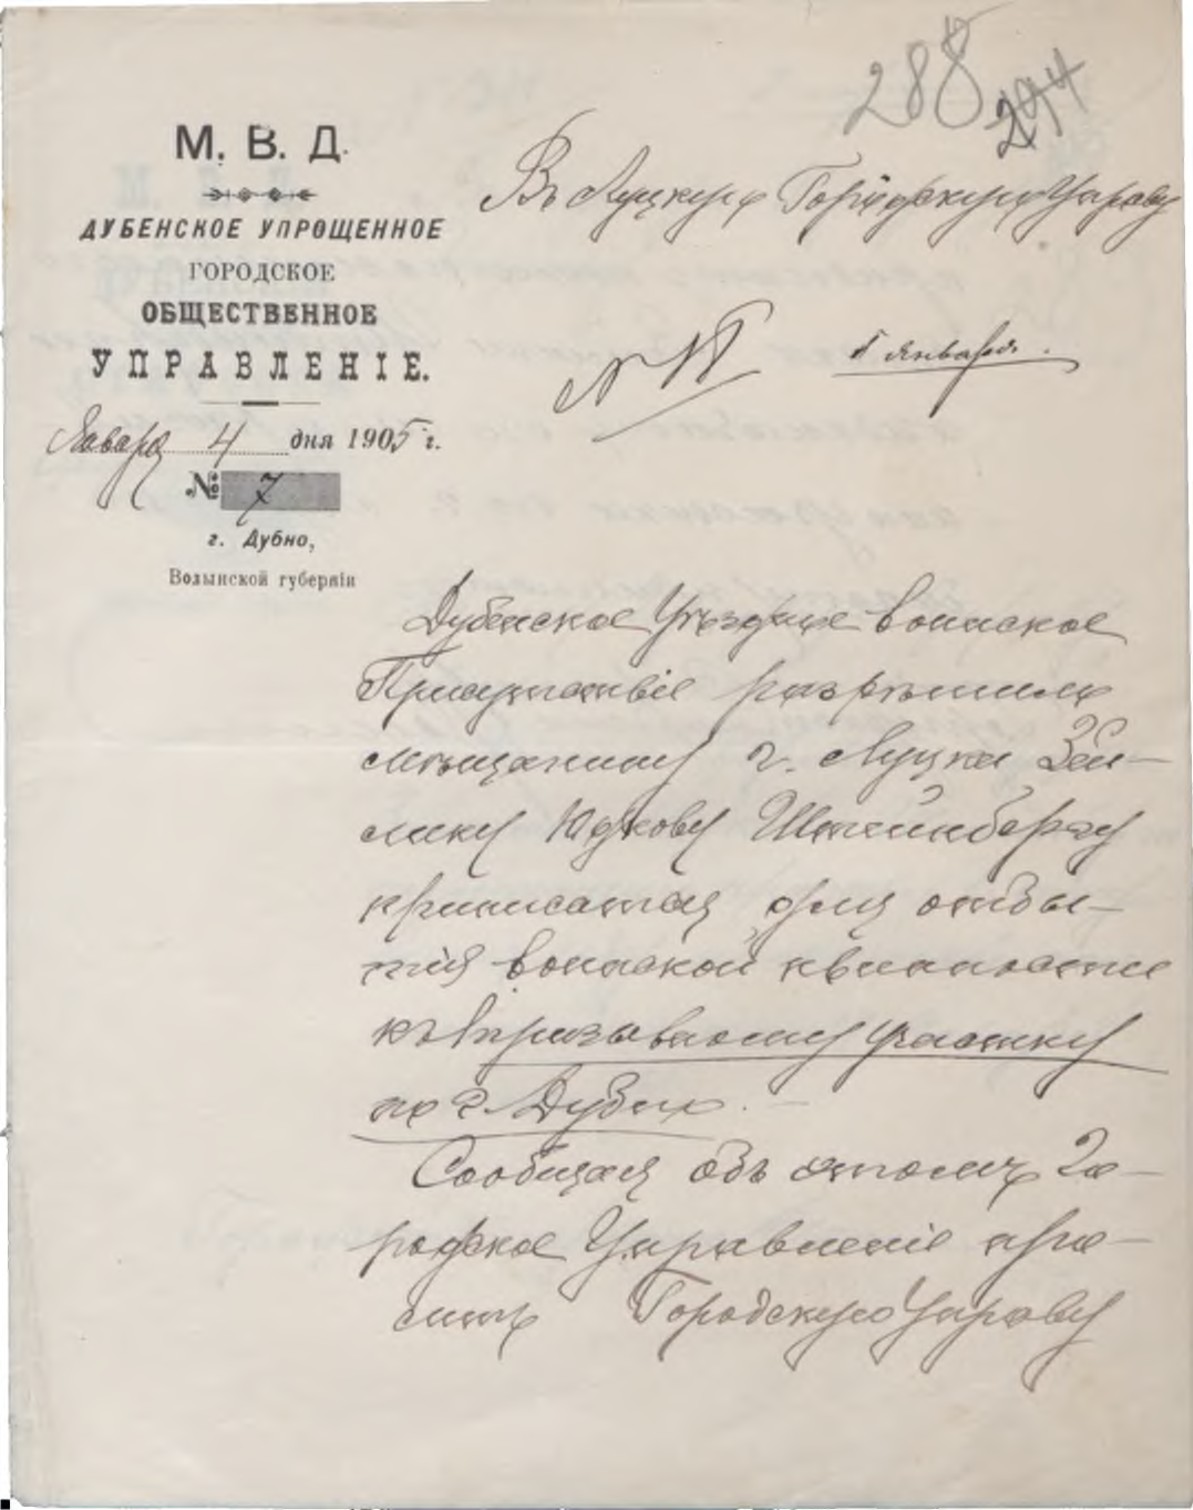 288
294
М. В. Д.
ДУБЕНСКОЕ УПРОЩЕННОЕ
ГОРОДСКОЕ
ОБЩЕСТВЕННОЕ
УПРАВЛЕНІЕ.
Января 4 дня 1905 г.
№ 7
г. Дубно,
Волынской губерніи
Въ Луцкую Городскую Управу
5 Января.
Дубенское Уѣздное воинское
Присутствіе разрѣшило
мѣщанину г. Луцка Зей-
лику Юдкову Штейнбергу
приписаться для отбы-
тія воинской повинности
къ призывному участку
по г. Дубно.
Сообщая объ этомъ Го-
родское Управленіе про-
ситъ Городскую Управу